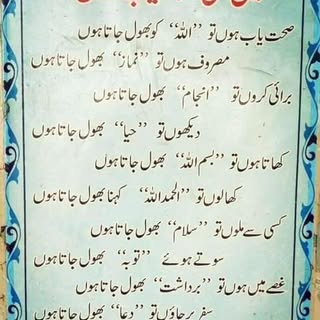 صحت یاب ہوں تو ’’اللہ‘‘ کو بھول جاتا ہوں
مصروف ہوں تو ’’نماز‘‘ بھول جاتا ہوں
برائی کروں تو ’’انجام‘‘ بھول جاتا ہوں
دیکھوں تو ’’حیا‘‘ بھول جاتا ہوں
کھاتا ہوں تو ’’بسم اللہ‘‘ بھول جاتا ہوں
کھا لوں تو ’’الحمد اللہ‘‘ کہنا بھول جاتا ہوں
کسی سے ملوں تو ’’سلام‘‘ بھول جاتا ہوں
سوتے ہوئے ’’توبہ‘‘ بھول جاتا ہوں
غصے میں ہوں تو ’’برداشت‘‘ بھول جاتا ہوں
سفر پر جاؤں تو ’’دعا‘‘ بھول جاتا ہوں